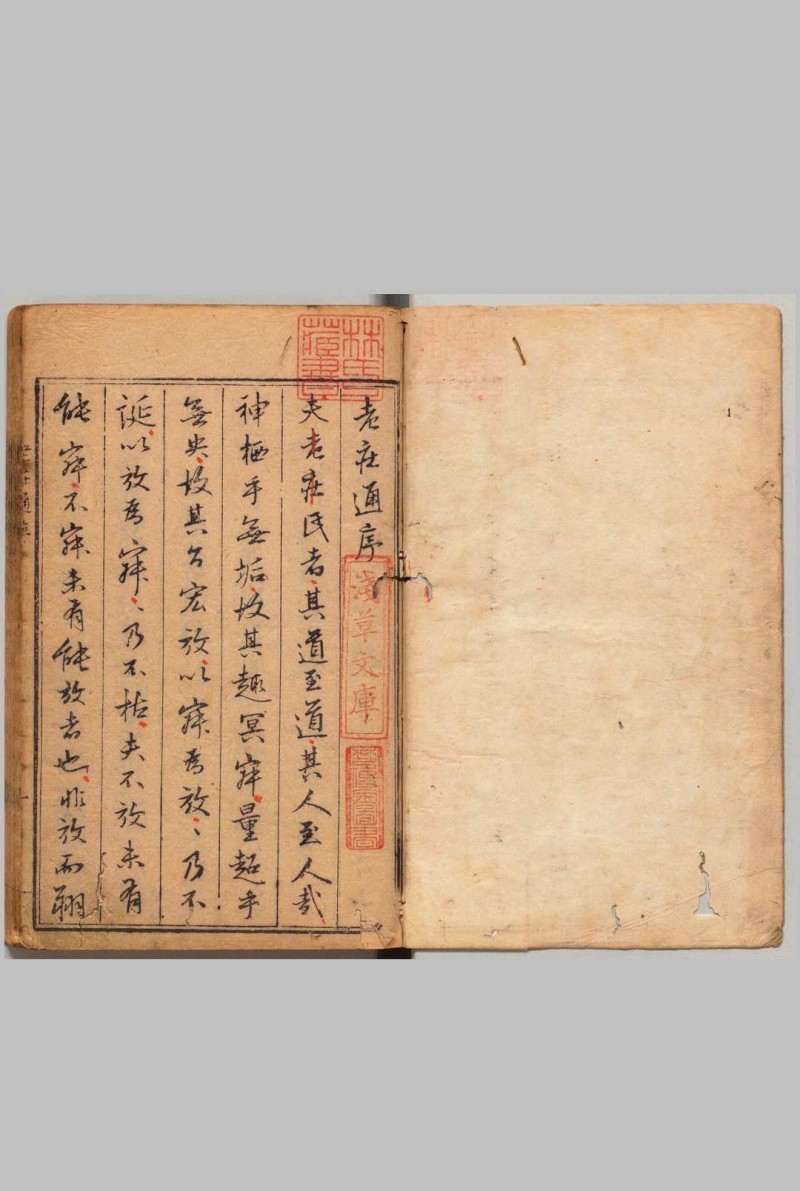 老庄通序
夫老庄氏者其道至道其人至人哉
神栖乎無垢故其趣冥寂量超乎
無央故其言宏放以寂為放〻乃不
誕以放為寂〻乃不枯夫不放未有
能寂不寂未有能放者也非放而翱
林氏藏書
淺草文庫